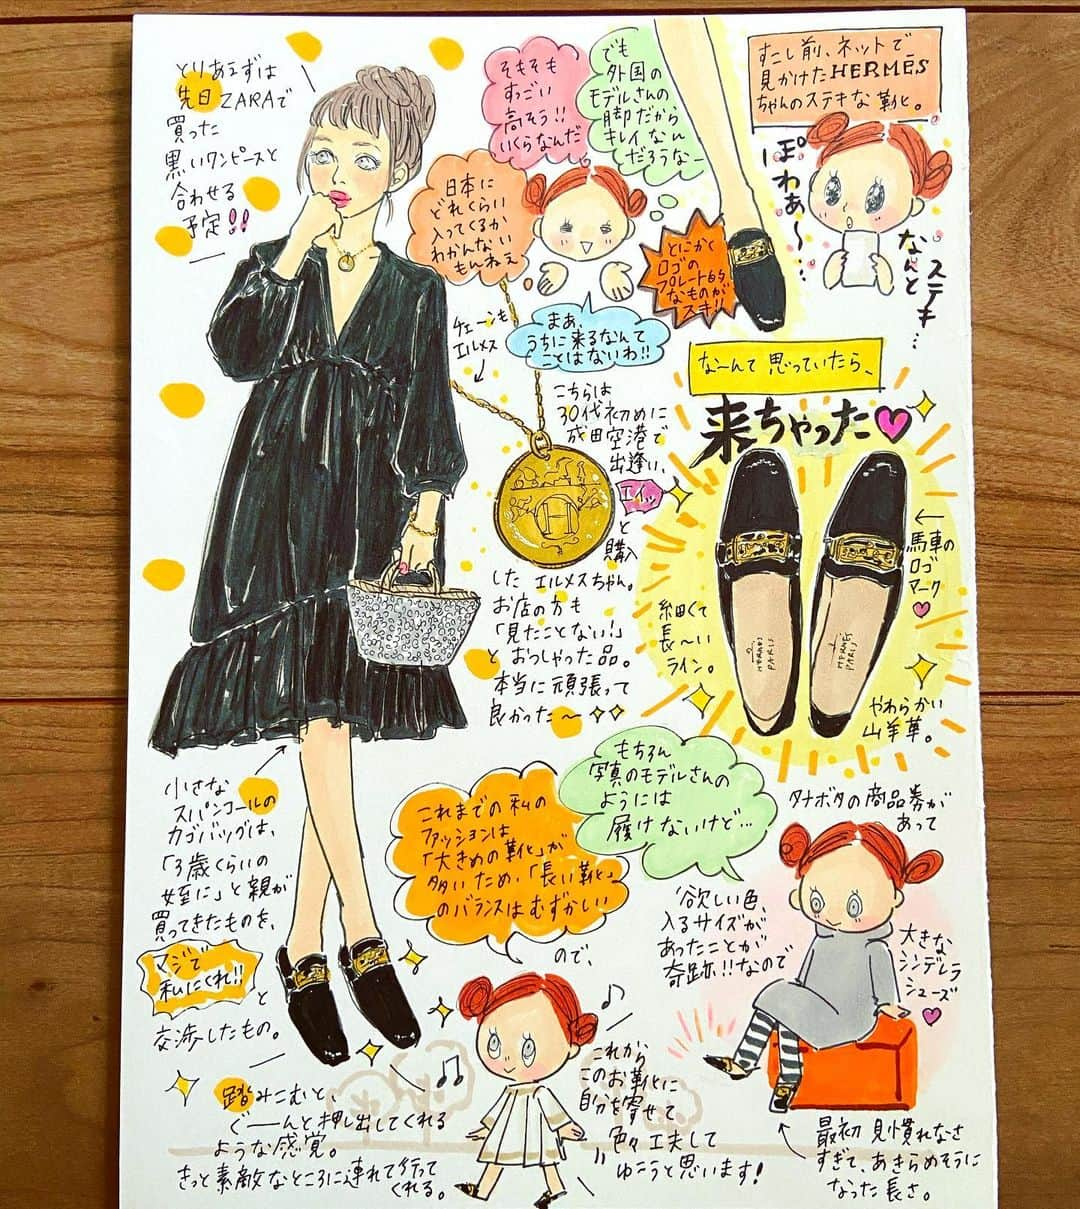 すこし前、ネットで
見かけたHERMĒS
ちゃんのステキな靴。
ぽわぁ〜…
なんと
ステキ…
でも
外国の
モデルさんの
脚だから
キレイなん
だろうなー
そもそも
すっごい
高そう!!
いくらなんだ
日本に
どれくらい
入ってくるか
わかんない
もんねぇ
とにかく
ロゴの
プレート的
なものが
スキ!!
まあ、
うちに来るなんて
ことはないわ!!
な〜んて思っていたら、
来ちゃった♡
←
馬車の
ロゴ
マーク
♡
細くて
長〜い
ライン。
HERMES
PARIS
HERMES
PARIS
やわらかい
山羊革。
とりあえずは
先日ZARAで
買った
黒いワンピースと
合わせる
予定!!
チェーンも
エルメス
こちらは
30代初めに
成田空港で
出逢い、
エイッ
と
購入
した エルメスちゃん。
お店の方も
「見たことない!」
と おっしゃった品。
本当に頑張って
良かった〜
H
小さな
スパンコールの
カゴバッグは、
「3歳くらいの
姪に」と親が
買ってきたものを、
マジで
私にくれ!!
と
交渉したもの。
これまでの私の
ファッションは
「大きめの靴」が
多いため、「長い靴」
のバランスはむずかしい
ので、
もちろん
写真のモデルさんの
ようには
履けないけど…
タナボタの商品券が
あって
欲しい色、
入るサイズが
あったことが
奇跡!!なので
大きな
シンデレラ
シューズ
♡
踏みこむと、
ぐ――んと押し出してくれる
ような感覚。
きっと素敵なところに連れて行って
くれる。
これから
このお靴に
自分を寄せて
色々工夫して
ゆこうと思います!
最初 見慣れなさ
すぎて、あきらめそうに
なった長さ。